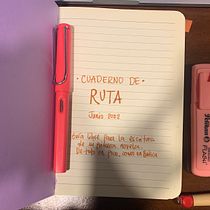 · CUADERNO DE ·
RUTA
Junio 2022
Guía libre para la escritura
de mi primera novela.
De todo un poco, como en botica
Pelikan
FLASH